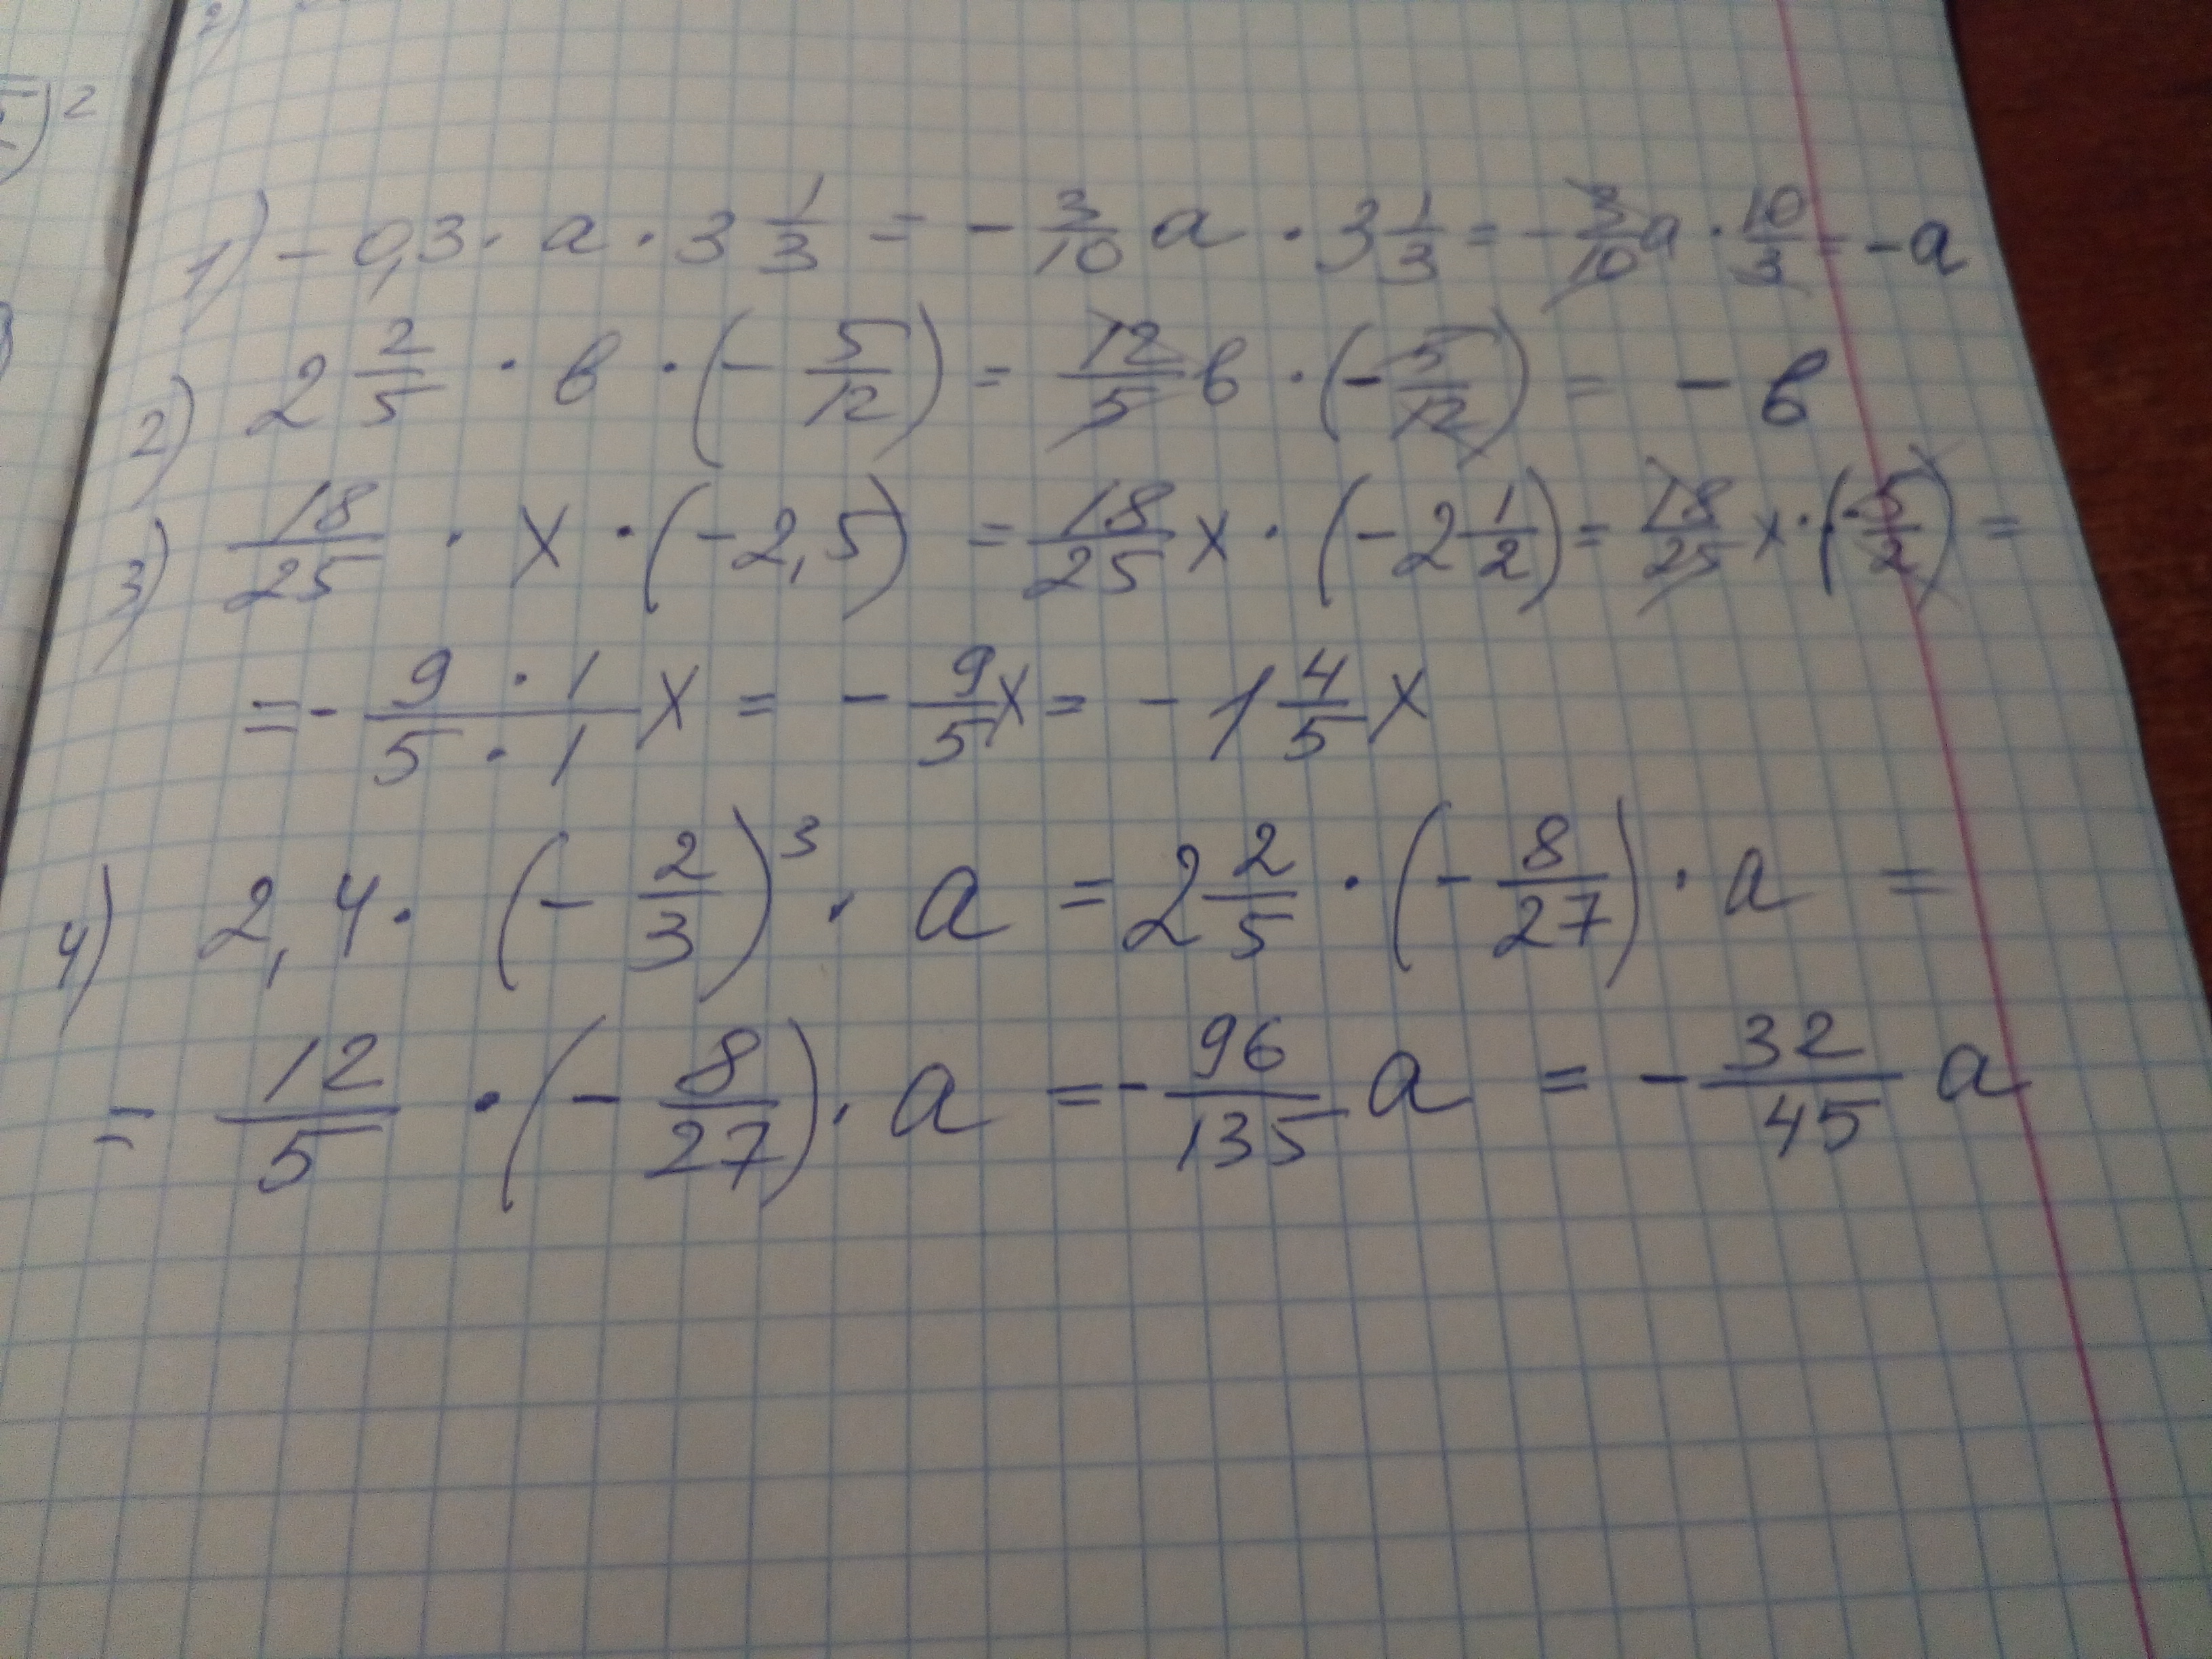 1) - 0,3 · a · 3 1/3 = - 3/10 a · 3 1/3 = - 3/10 a · 10/3 = - a
2) 2 2/5 · в · (- 5/12) = 12/5 в · (- 5/12) = - в
3) 18/25 · x · (-2,5) = 18/25 x · (-2 1/2) = 18/25 x · (- 5/2) =
= - 9 · 1 / 5 · 1 x = - 9/5 x = - 1 4/5 x
4) 2,4 · (- 2/3)³ · a = 2 2/5 · (- 8/27) · a =
= 12/5 · (- 8/27) · a = - 96/135 a = - 32/45 a